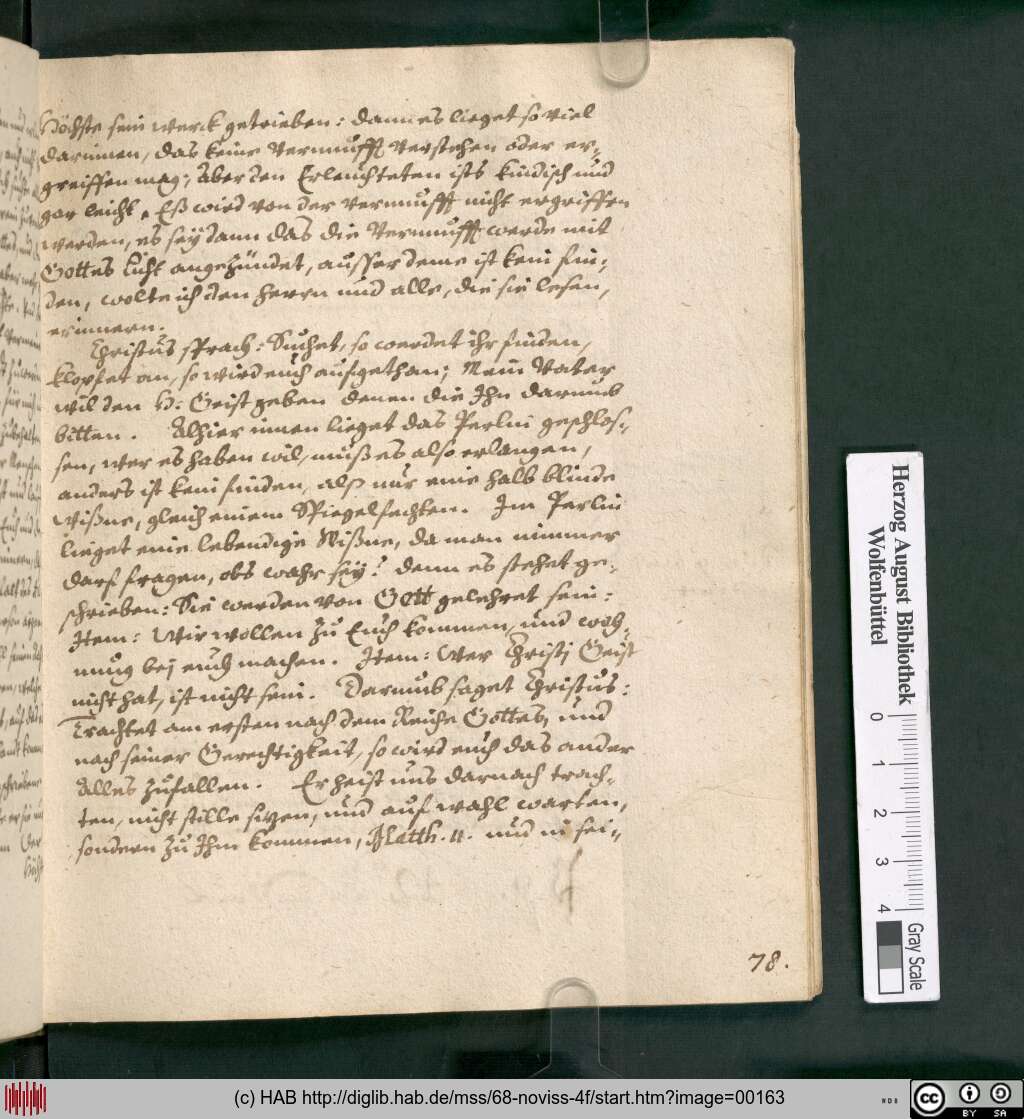 Höchste sein werck getrieben: dann es lieget so viel
darinnen, das keine Vernunfft verstehen oder er-
greiffen mag; Aber den Erleuchteten ists kindisch und
gar leicht. Eß wird von der vernunfft nicht ergriffen
werden, es seÿ dann das die Vernunfft werde mit
Gottes Licht angezündet, ausser deme ist kein fin-
den, wolte ich den Herrn und alle, die sie lesen,
erinnern.
Christus sprach: Suchet, so werdet ihr finden,
klopfet an, so wird euch aufgethan; Mein Vater
wil den H: Geist geben denen die Ihn darumb
bitten. Alhier innen lieget das Perlin geschlos-
sen, wer es haben wil, muß es also erlangen,
anders ist kein finden, alß nur eine halb blinde
Wißne, gleich einem Spiegelfechten. Im Perlin
lieget eine lebendige Wißne, da man nimmer
darf fragen, obs wahr seÿ? denn es stehet ge-
schrieben: Sie werden von Gott gelehret sein:
Item: Wir wollen zu Euch kommen, und woh-
nung bej euch machen. Item: Wer Christj Geist
nicht hat, ist nicht sein. Darumb saget Christus:
Trachtet am ersten nach dem Reiche Gottes, und
nach seiner Gerechtigkeit, so wird euch das ander
Alles zufallen. Er heist uns darnach trach-
ten, nicht stille sitzen, und auf wahl warten,
sondern zu Ihm kommen, Matth. 11. und in sei-
78.
Herzog August Bibliothek
Wolfenbüttel
0 1 2 3 4
Gray Scale
(c) HAB http://diglib.hab.de/mss/68-noviss-4f/start.htm?image=00163
cc BY SA